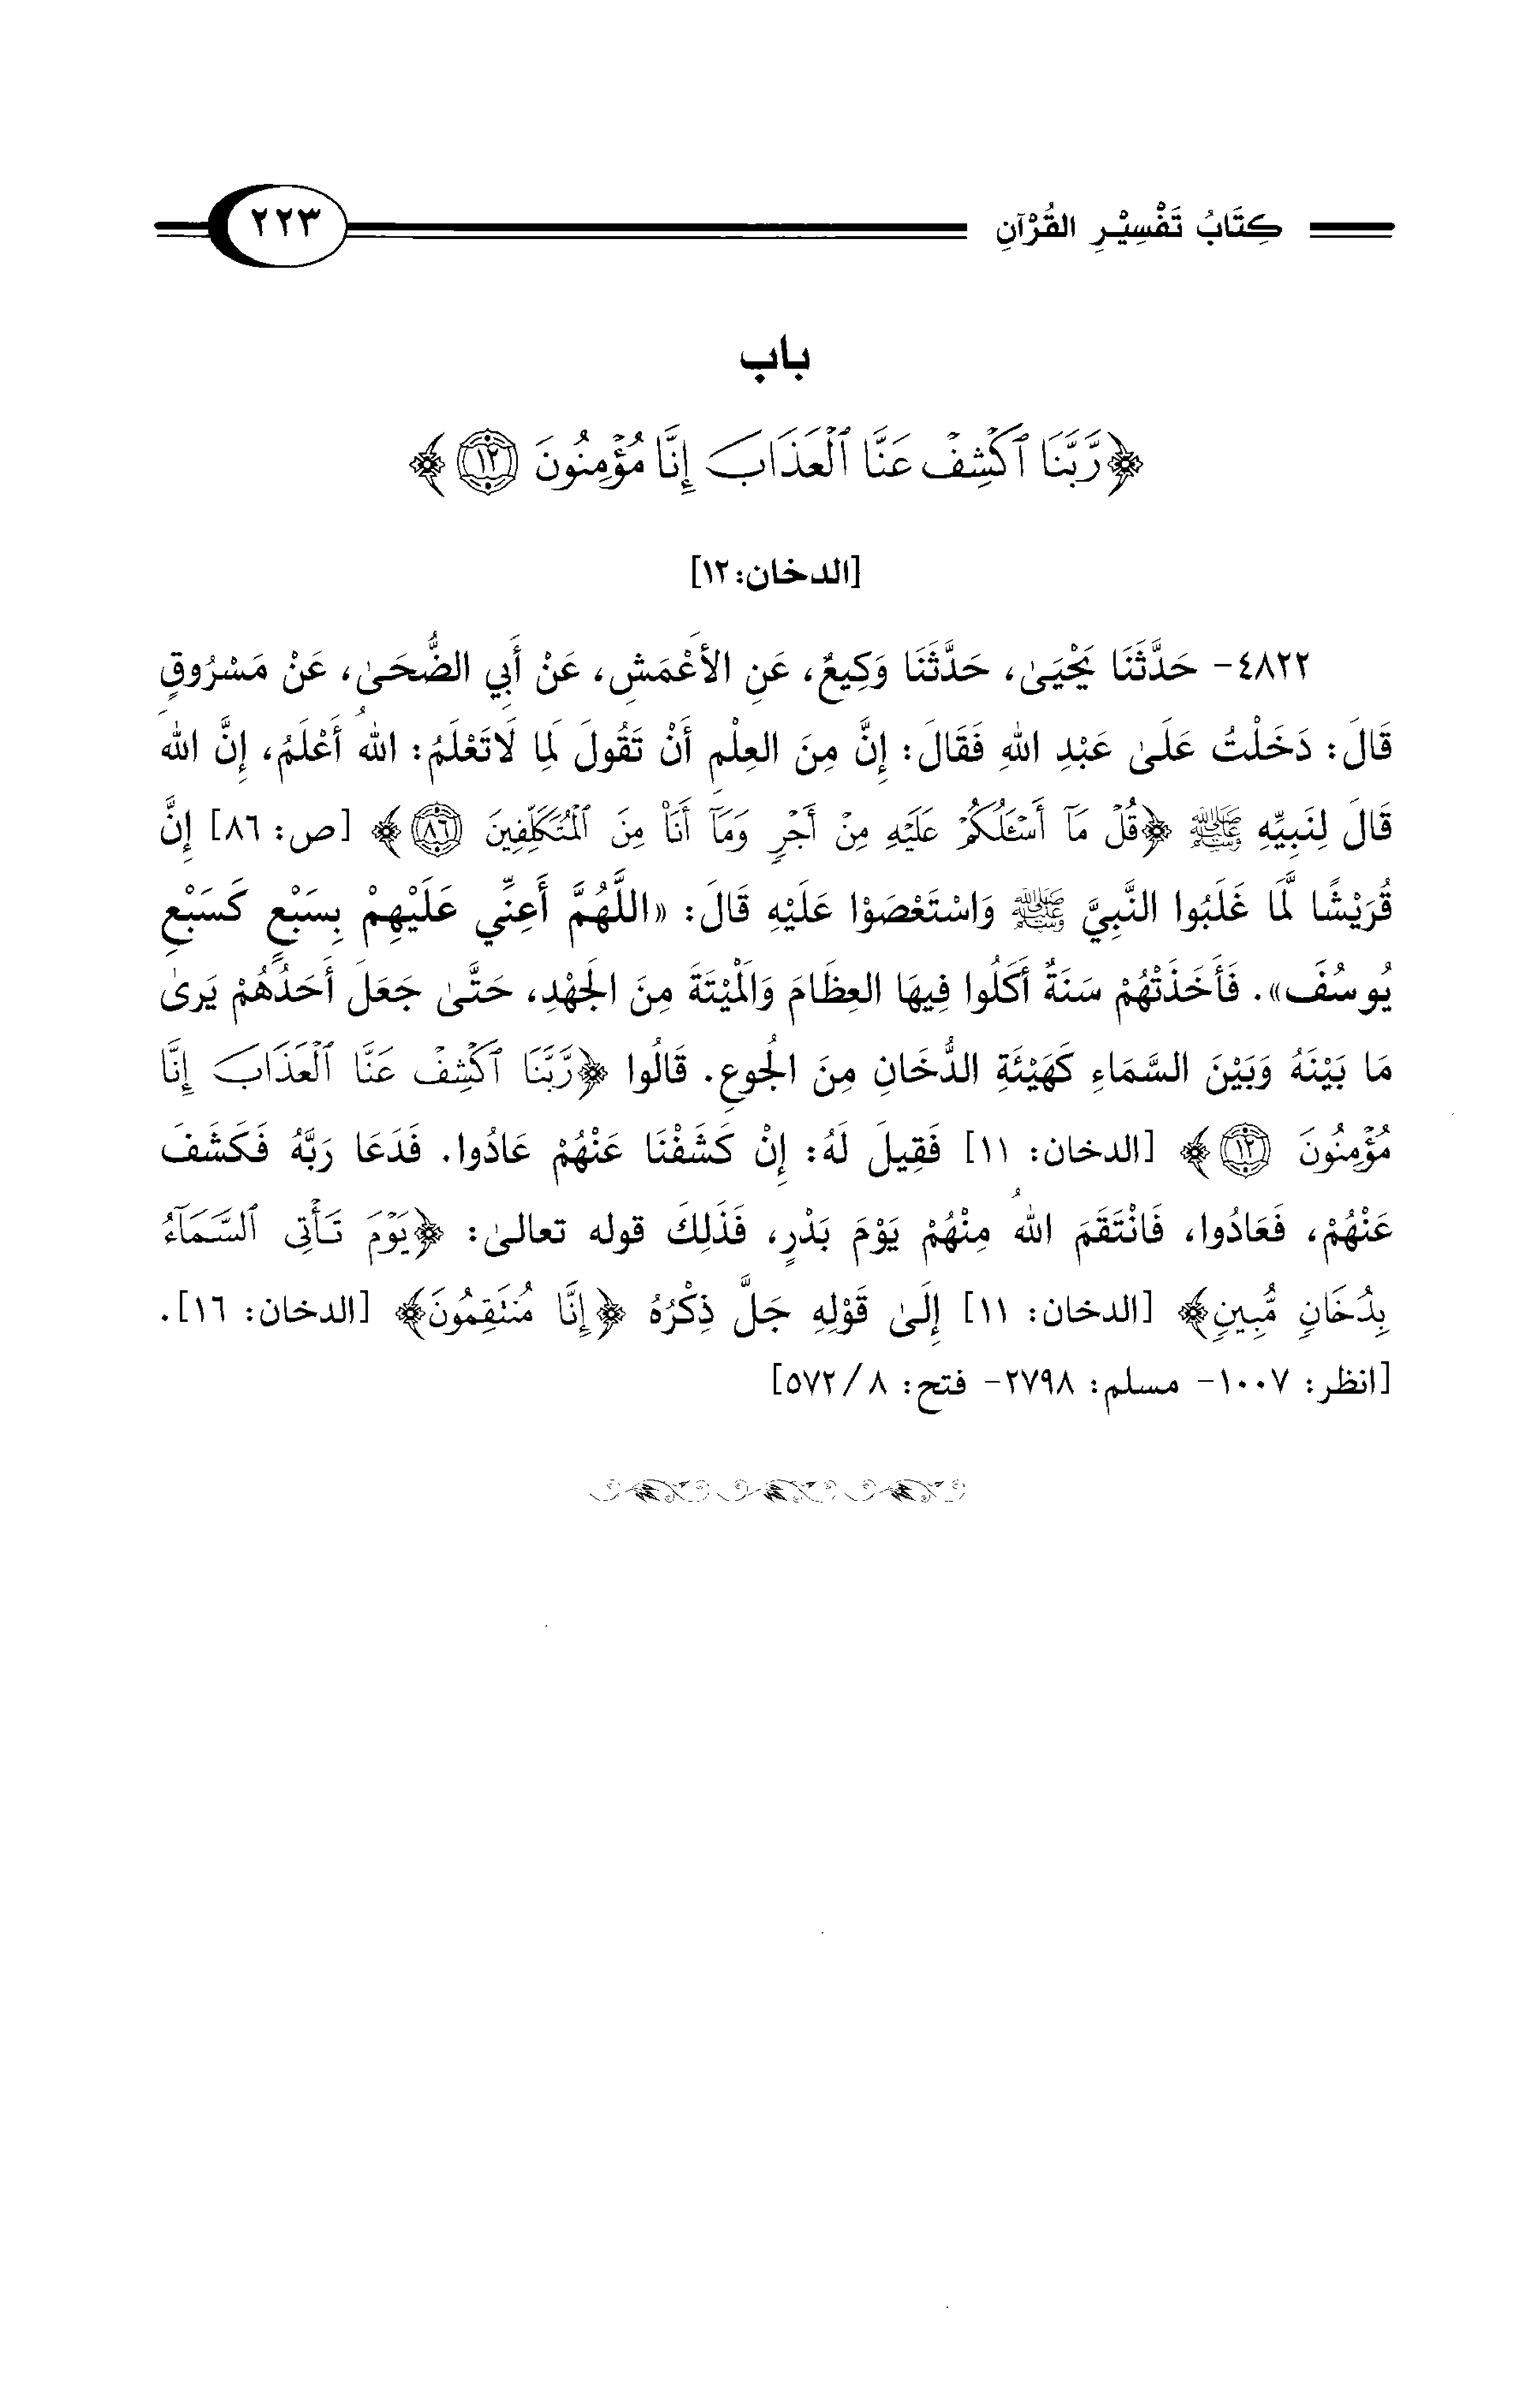 كِتَابُ تَفْسِيْرِ القُرْآنِ ٢٢٣
باب
﴿رَّبَّنَا ٱكۡشِفۡ عَنَّا ٱلۡعَذَابَ إِنَّا مُؤۡمِنُونَ ١٢﴾
[الدخان: ١٢]
٤٨٢٢- حَدَّثَنَا يَحْيَىٰ، حَدَّثَنَا وَكِيعٌ، عَنِ الأَعْمَشِ، عَنْ أَبِي الضُّحَىٰ، عَنْ مَسْرُوقٍ
قَالَ: دَخَلْتُ عَلَىٰ عَبْدِ اللهِ فَقَالَ: إِنَّ مِنَ العِلْمِ أَنْ تَقُولَ لِمَا لَاتَعْلَمُ: اللهُ أَعْلَمُ، إِنَّ اللهَ
قَالَ لِنَبِيِّهِ ﷺ ﴿قُلۡ مَآ أَسۡـَٔلُكُمۡ عَلَيۡهِ مِنۡ أَجۡرٖ وَمَآ أَنَا۠ مِنَ ٱلۡمُتَكَلِّفِينَ ٨٦﴾ [ص: ٨٦] إِنَّ
قُرَيْشًا لَّمَا غَلَبُوا النَّبِيَّ ﷺ وَاسْتَعْصَوْا عَلَيْهِ قَالَ: «اللَّهُمَّ أَعِنِّي عَلَيْهِمْ بِسَبْعٍ كَسَبْعِ
يُوسُفَ». فَأَخَذَتْهُمْ سَنَةٌ أَكَلُوا فِيهَا العِظَامَ وَالَمْيْتَةَ مِنَ الَجْهْدِ، حَتَّىٰ جَعَلَ أَحَدُهُمْ يَرىٰ
مَا بَيْنَهُ وَبَيْنَ السَّمَاءِ كَهَيْئَةِ الدُّخَانِ مِنَ الُجوعِ. قَالُوا ﴿رَّبَّنَا ٱكۡشِفۡ عَنَّا ٱلۡعَذَابَ إِنَّا
مُؤۡمِنُونَ ١٢﴾ [الدخان: ١١] فَقِيلَ لَهُ: إِنْ كَشَفْنَا عَنْهُمْ عَادُوا. فَدَعَا رَبَّهُ فَكَشَفَ
عَنْهُمْ، فَعَادُوا، فَانْتَقَمَ اللهُ مِنْهُمْ يَوْمَ بَدْرٍ، فَذَلِكَ قوله تعالىٰ: ﴿يَوۡمَ تَأۡتِي ٱلسَّمَآءُ
بِدُخَانٖ مُّبِينٖ﴾ [الدخان: ١١] إِلَىٰ قَوْلِهِ جَلَّ ذِكْرُهُ ﴿إِنَّا مُنتَقِمُونَ﴾ [الدخان: ١٦].
[انظر: ١٠٠٧- مسلم: ٢٧٩٨- فتح: ٨/ ٥٧٢]